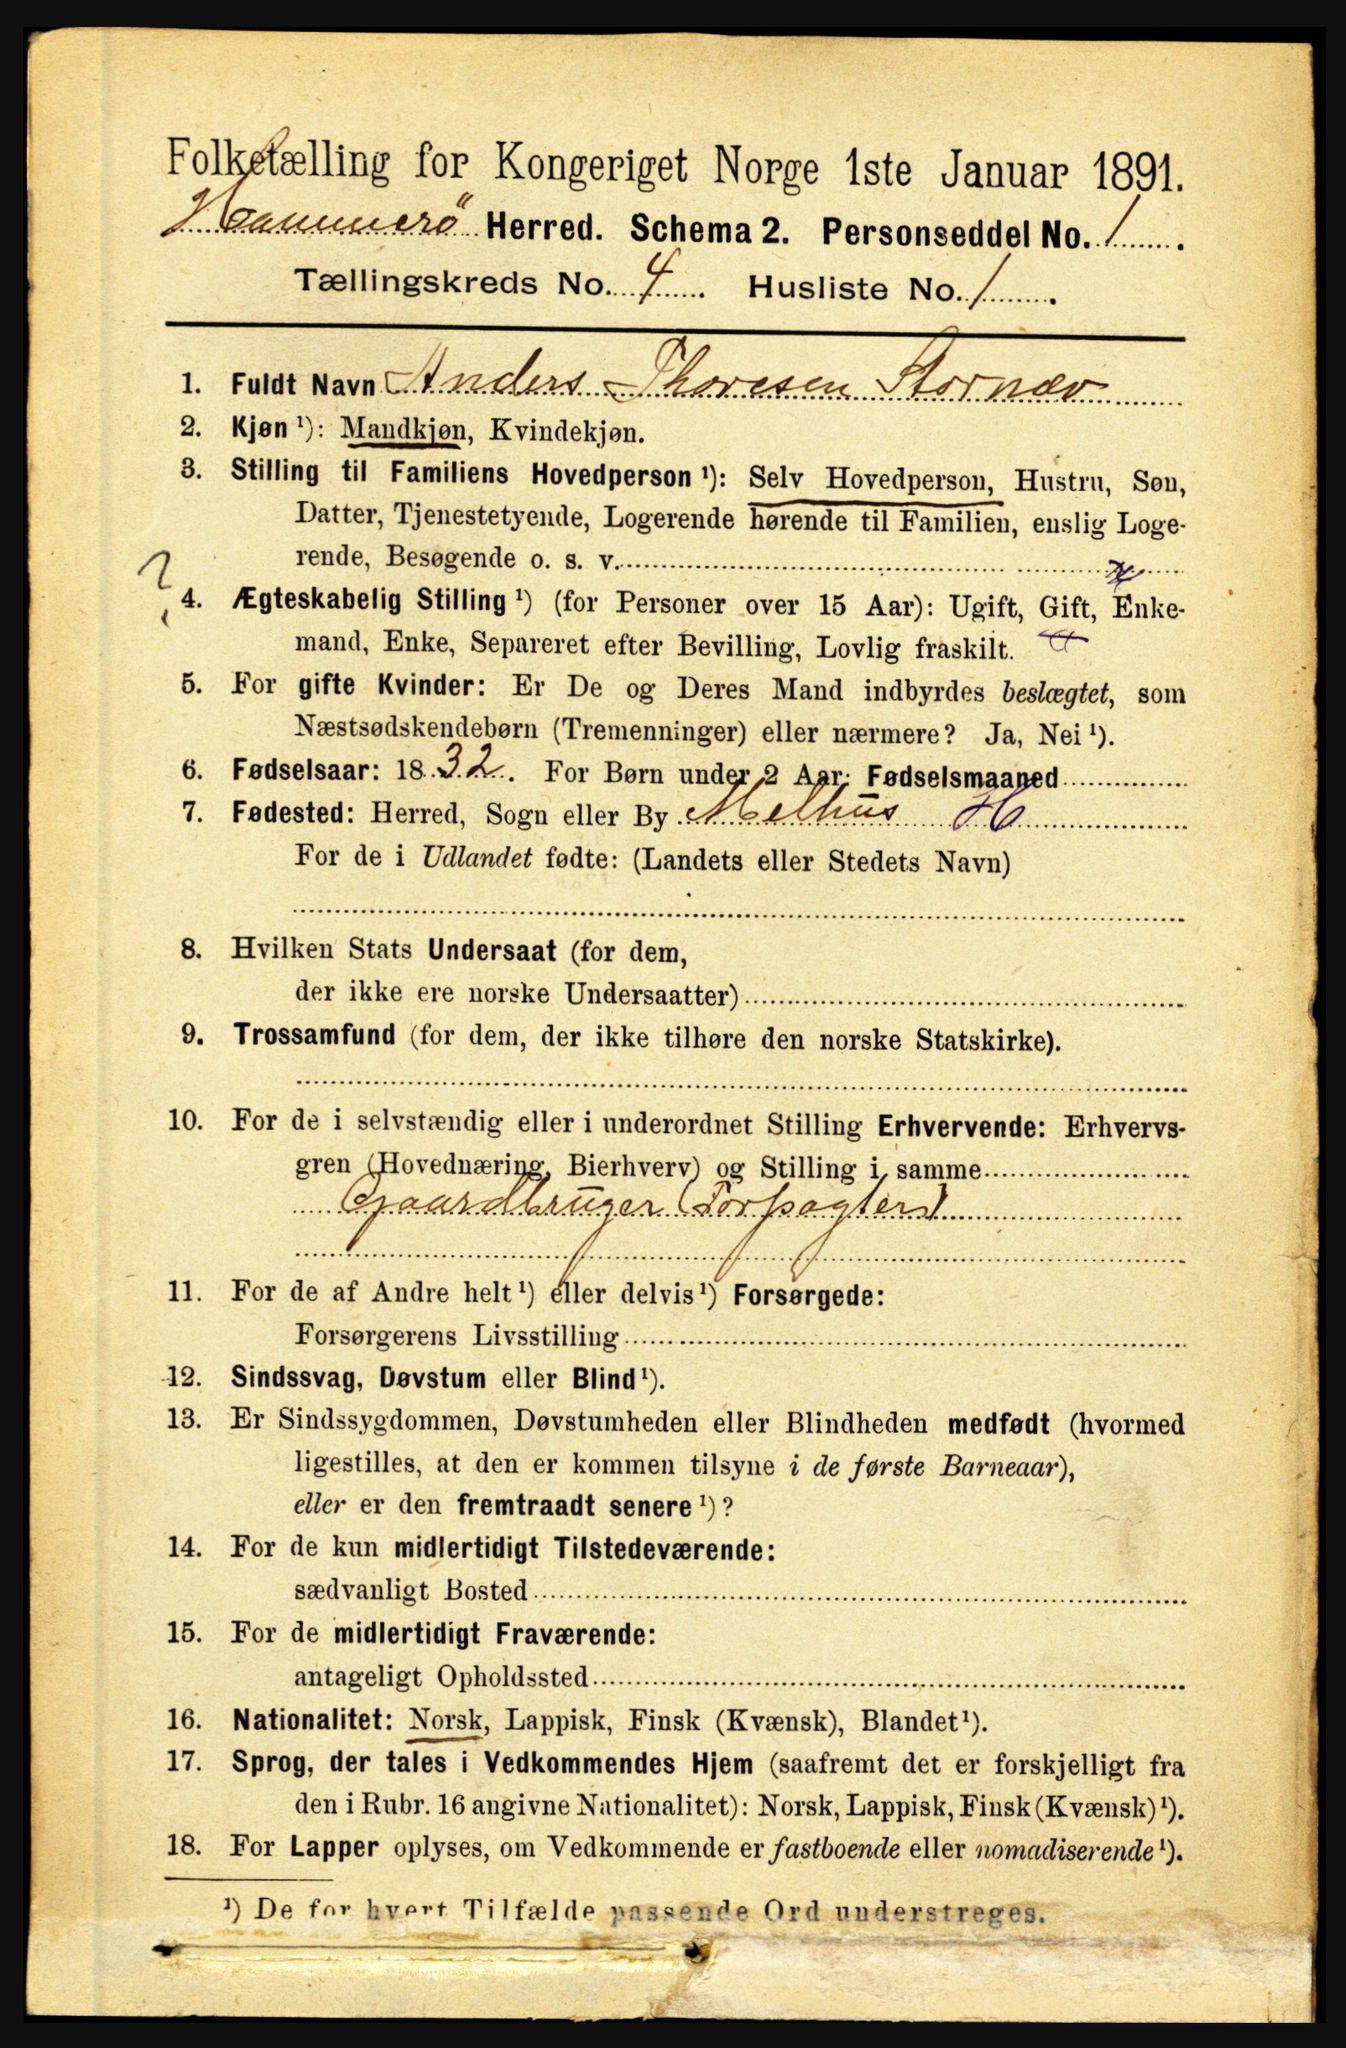 Folketælling for Kongeriget Norge 1ste Januar 1891.
Hammerö Herred. Schema 2. Personseddel No. 1.
Tællingskreds No. 4. Husliste No. 1.
1. Fuldt Navn Anders Thoresen Stornæv
2. Kjøn ¹): Mandkjøn, Kvindekjøn.
3. Stilling til Familiens Hovedperson ¹): Selv Hovedperson, Hustru, Søn,
Datter, Tjenestetyende, Logerende hørende til Familien, enslig Loge-
rende, Besøgende o. s. v.
?
4. Ægteskabelig Stilling ¹) (for Personer over 15 Aar): Ugift, Gift, Enke-
mand, Enke, Separeret efter Bevilling, Lovlig fraskilt.
5. For gifte Kvinder: Er De og Deres Mand indbyrdes beslægtet, som
Næstsødskendebørn (Tremenninger) eller nærmere? Ja, Nei ¹).
6. Fødselsaar: 1832. For Børn under 2 Aar: Fødselsmaaned
7. Fødested: Herred, Sogn eller By Melhus H
For de i Udlandet fødte: (Landets eller Stedets Navn)
8. Hvilken Stats Undersaat (for dem,
der ikke ere norske Undersaatter)
9. Trossamfund (for dem, der ikke tilhøre den norske Statskirke).
10. For de i selvstændig eller i underordnet Stilling Erhvervende: Erhvervs-
gren (Hovednæring, Bierhverv) og Stilling i samme
Gaardbruger (Forpagter)
11. For de af Andre helt ¹) eller delvis ¹) Forsørgede:
Forsørgerens Livsstilling
12. Sindssvag, Døvstum eller Blind ¹).
13. Er Sindssygdommen, Døvstumheden eller Blindheden medfødt (hvormed
ligestilles, at den er kommen tilsyne i de første Barneaar),
eller er den fremtraadt senere ¹)?
14. For de kun midlertidigt Tilstedeværende:
sædvanligt Bosted
15. For de midlertidigt Fraværende:
antageligt Opholdssted
16. Nationalitet: Norsk, Lappisk, Finsk (Kvænsk), Blandet ¹).
17. Sprog, der tales i Vedkommendes Hjem (saafremt det er forskjelligt fra
den i Rubr. 16 angivne Nationalitet): Norsk, Lappisk, Finsk (Kvænsk) ¹).
18. For Lapper oplyses, om Vedkommende er fastboende eller nomadiserende ¹).
¹) De for hvert Tilfælde passende Ord understreges.